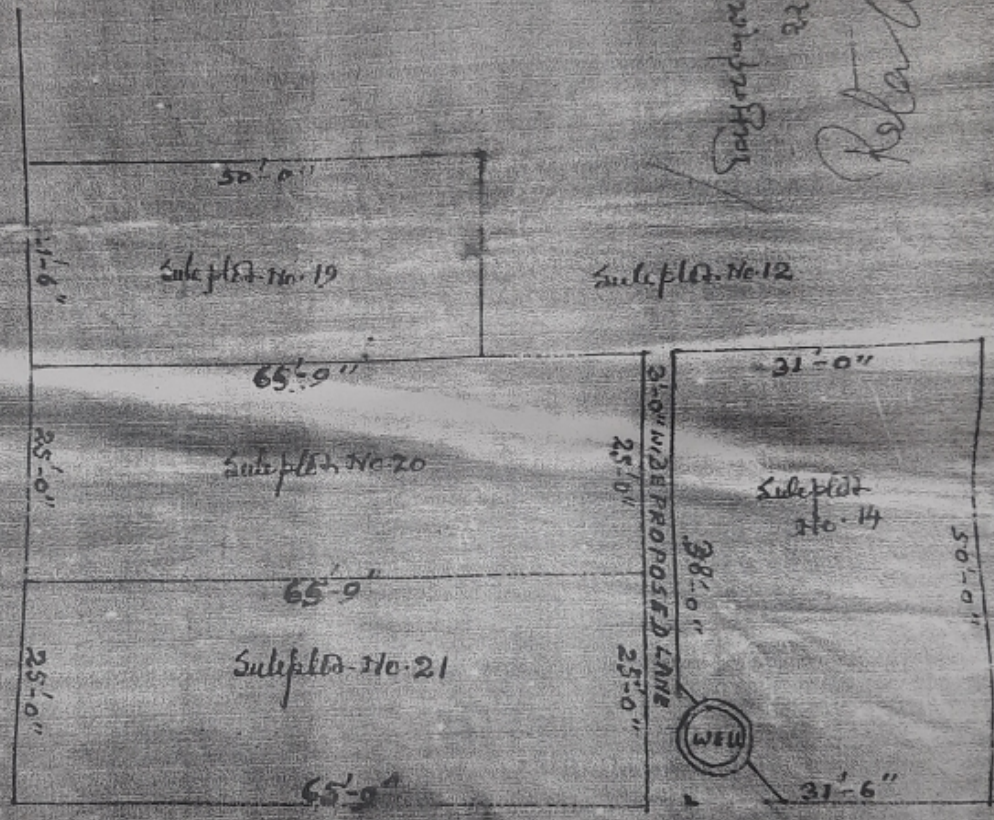 50'-0"
Subplot No. 19
Subplot No. 12
65'-9"
31'-0"
25'-0"
Subplot No. 20
25'-0"
3'-0" WIDE PROPOSED LANE
Subplot
No. 14
38'-0"
50'-0"
65'-9"
25'-0"
Subplot No. 21
25'-0"
WELL
65'-9"
31'-6"